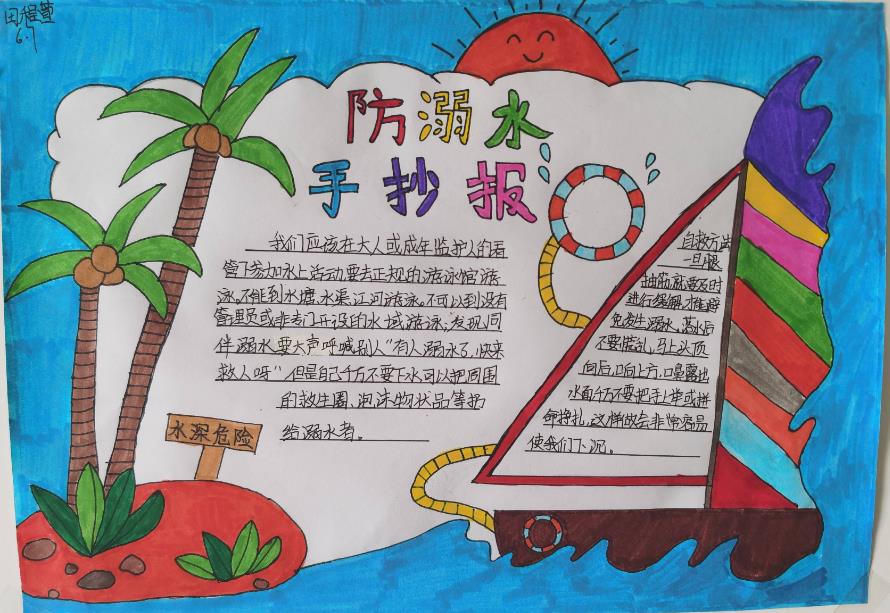 田程萱
6.7
防溺水
手抄报
我们应该在大人或成年监护人的看
管下参加水上活动要去正规的游泳馆游
泳,不能到水塘、水渠、江河游泳。不可以到没有
管理员或非专门开设的水域游泳;发现同
伴溺水要大声呼喊别人“有人溺水了,快来
救人呀”但是自己千万不要下水可以把周围
的救生圈,泡沫物状品等扔
给溺水者。
水深危险
自救方法
一旦腿
抽筋就要及时
进行缓解,才能避
免发生溺水。落水后
不要慌乱,马上头顶
向后,口向上方,口鼻露出
水面千万不要把手上举或拼
命挣扎,这样做会非常容易
使我们下沉。